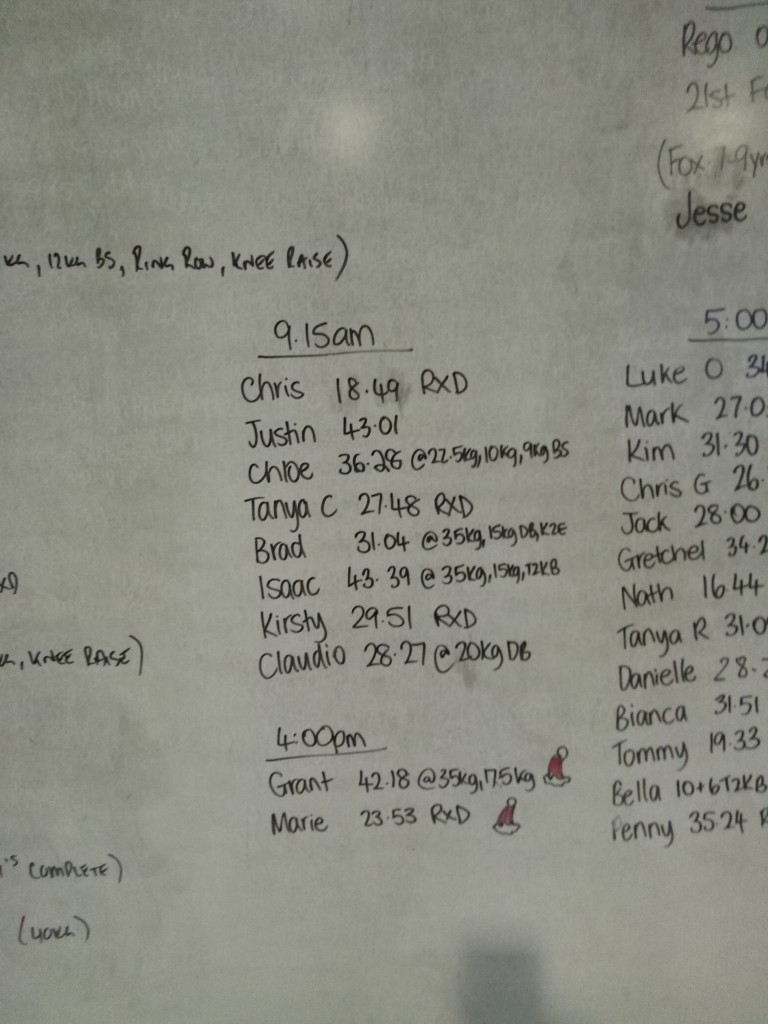 Rego
21st
(Fox 7-9yr
Jesse
, 12KG BS, RING ROW, KNEE RAISE)
9.15am
Chris 18.49 RXD
Justin 43.01
Chloe 36.28 @22.5kg, 10kg, 9kg BS
Tanya C 27.48 RXD
Brad 31.04 @35kg, 15kg DB, K2E
Isaac 43.39 @ 35kg, 15kg, T2KB
Kirsty 29.51 RXD
Claudio 28.27 @20kg DB
, KNEE RAISE)
4:00pm
Grant 42.18 @35kg, 17.5kg
Marie 23.53 RXD
COMPLETE)
(40KG)
5:00
Luke O 34
Mark 27.0
Kim 31.30
Chris G 26.
Jack 28.00
Gretchel 34.2
Nath 16.44
Tanya R 31.0
Danielle 28.2
Bianca 31.51
Tommy 19.33
Bella 10+6T2KB
Penny 35.24